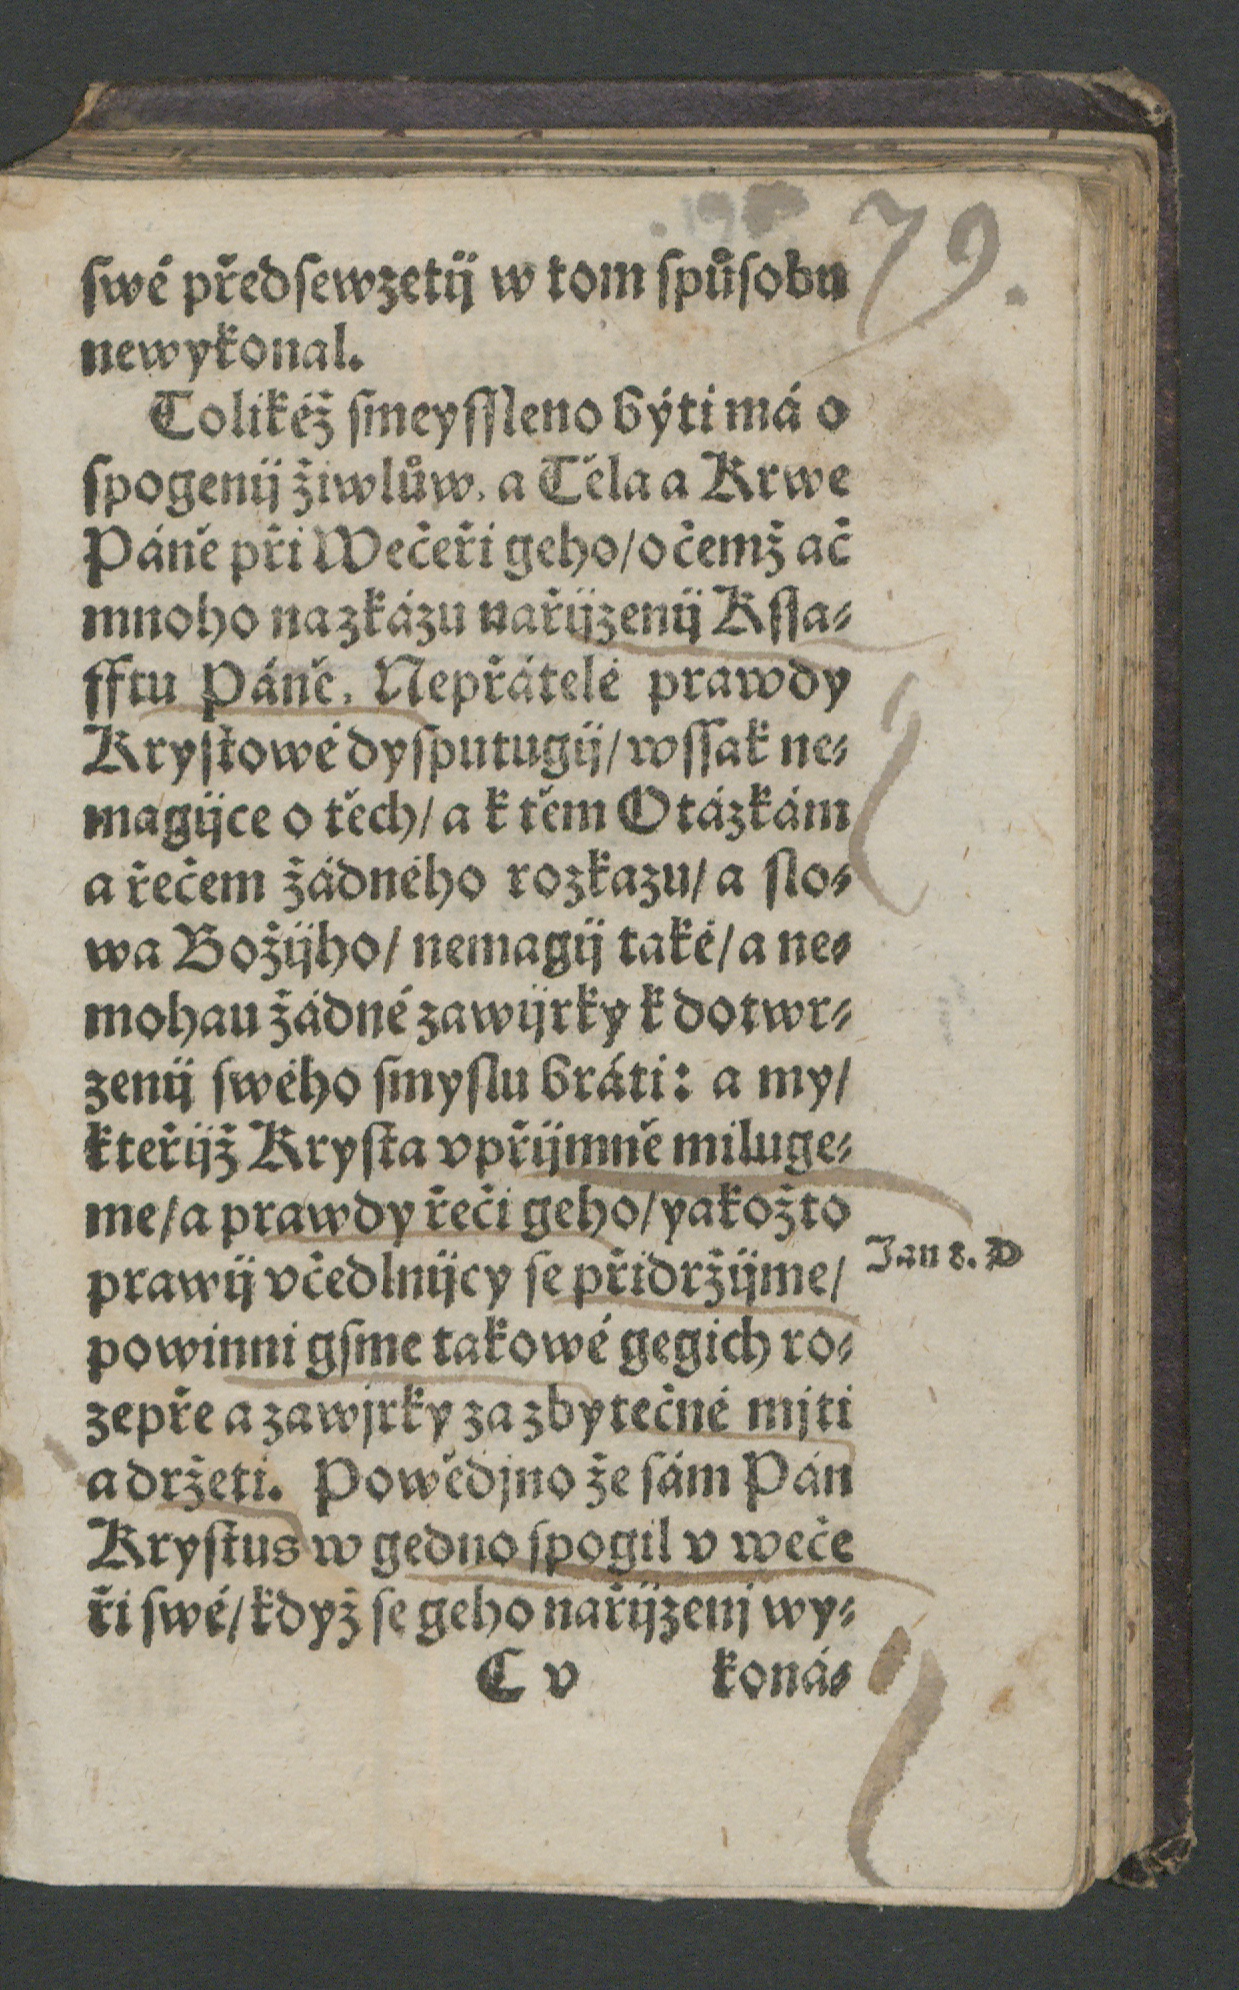 79.
swé předsewzetij w tom spůsobu
newykonal.
Tolikéž smeyssleno býti má o
spogenij žiwlůw, a Těla a Krwe
Páně při Wečeři geho/ o čemž ač
mnoho na zkázu nařijzenij Kssa-
fftu Páně, Nepřátelé prawdy
Krystowé dysputugij/ wssak ne-
magijce o těch/ a k těm Otázkám
a řečem žádného rozkazu/ a slo-
wa Božijho/ nemagij také/ a ne-
mohau žádné zawijrky k dotwr-
zenij swého smyslu bráti: a my/
kteřijž Krysta vpřijmně miluge-
me/ a prawdy řeči geho/ yakožto
prawij včedlnijcy se přidržijme/
Jan 8. D
powinni gsme takowé gegich ro-
zepře a zawjrky za zbytečné mjti
a držeti. Powědjno že sám Pán
Krystus w gedno spogil v weče
ři swé/ když se geho nařijzenj wy-
C v koná-